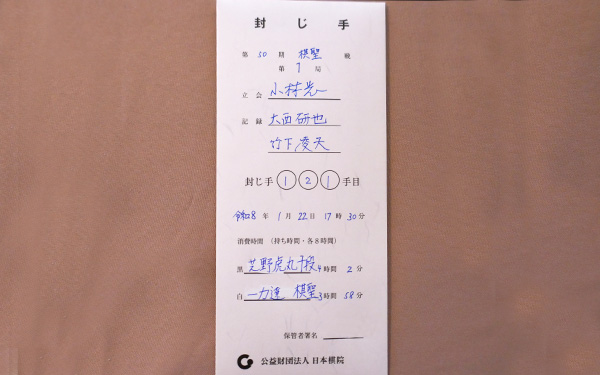 封じ手
第 50 期 棋聖 戦
第 1 局
立会 小林光一
記録 大西研也
竹下凌矢
封じ手 1 2 1 手目
令和8年 1月 22日 17時 30分
消費時間 (持ち時間・各8時間)
黒 芝野虎丸十段 4時間 2分
白 一力遼 棋聖 3時間 58分
保管者署名
公益財団法人 日本棋院